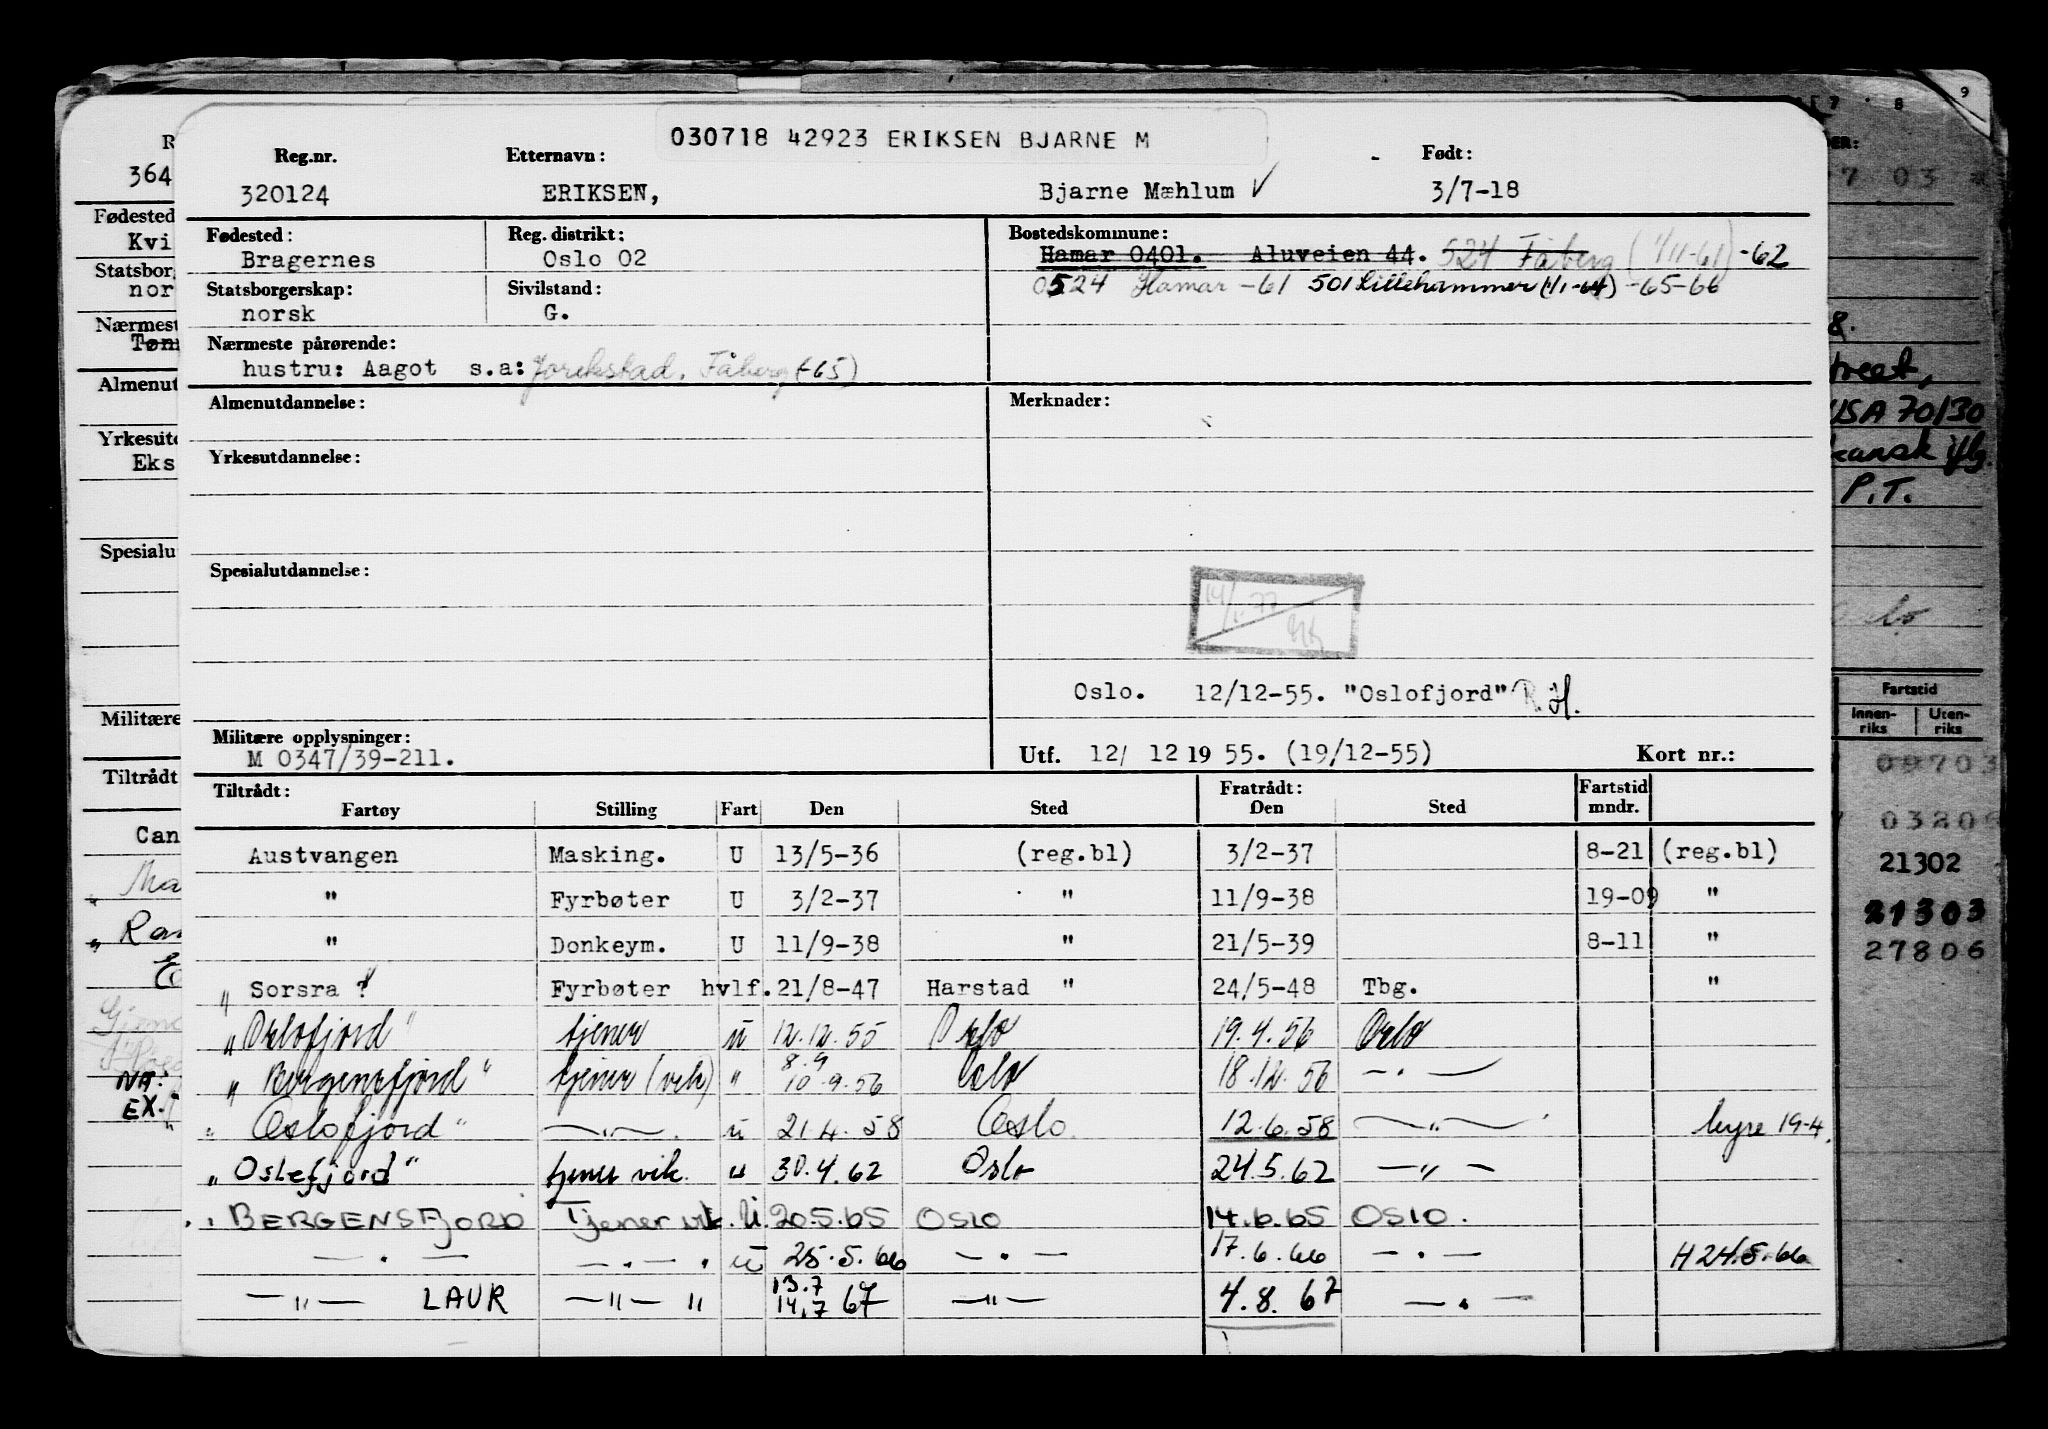 030718 42923 ERIKSEN BJARNE M
Reg.nr. Etternavn: Født:
320124 ERIKSEN, Bjarne Mæhlum ✓ 3/7-18
Fødested: Reg. distrikt: Bostedskommune:
Bragernes Oslo 02 Hamar 0401. Aluveien 44. 524 Fåberg (1/11-61) -62
Statsborgerskap: Sivilstand: 0524 Hamar -61 501 Lillehammer (1/1-64) -65-66
norsk G.
Nærmeste pårørende:
hustru: Aagot s.a: Jorekstad. Fåberg (-65)
Almenutdannelse: Merknader:
Yrkesutdannelse:
Spesialutdannelse:
14/1-77
Oslo. 12/12-55. "Oslofjord" R.H.
Militære opplysninger:
M 0347/39-211. Utf. 12/ 12 19 55. (19/12-55) Kort nr.:
Tiltrådt: Fratrådt: Fartstid
Fartøy Stilling Fart Den Sted Den Sted mndr.
Austvangen Masking. U 13/5-36 (reg.bl) 3/2-37 8-21 (reg.bl)
" Fyrbøter U 3/2-37 " 11/9-38 19-09 "
" Donkeym. U 11/9-38 " 21/5-39 8-11 "
" Sorsra ? Fyrbøter hvlf. 21/8-47 Harstad " 24/5-48 Tbg. "
"Oslofjord" tjener u 12.12.55 Oslo 19.4.56 Oslo
8.9
"Bergensfjord" tjener (vik) " 10.9.56 Oslo 18.12.56 — " —
"Oslofjord" — " — u 21.4.58 Oslo 12.6.58 — " — hyre 19-4.
"Oslofjord" tjener vik. " 30.4.62 Oslo 24.5.62 — " —
" BERGENSFJORD Tjener vik. U. 20.5.65 OSLO 14.6.65 OSLO.
— " — — " — " u 25.5.66 — " — 17.6.66 — " — H 24.5.66
13.7
— " — LAUR — " — " 14.7 67 — " — 4.8.67 — " —
364
Fødested
Kvi
Statsborg
nor
Nærmest
Tønn
Almenut
Yrkesutd
Eks
Spesialu
Militære
Tiltrådt
Can
Ma
Ran
NA:
EX.
7 8 9
7 03
&.
treet,
USA 70/30
P.T.
Oslo
Fartstid
Innen- Uten-
riks riks
09703
03206
21302
21303
27806